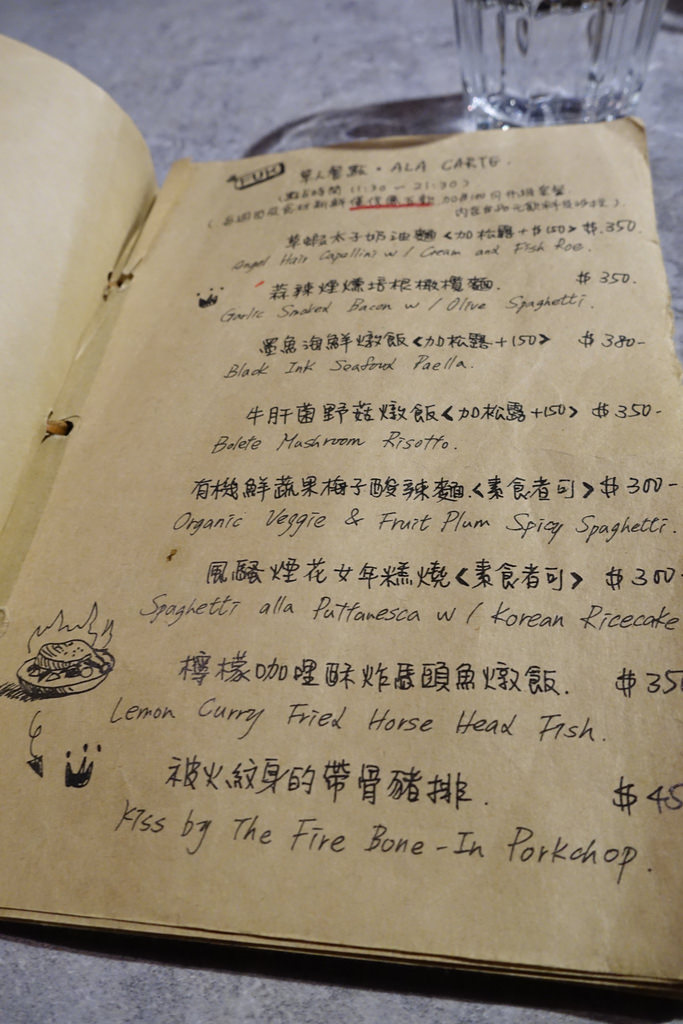 單人餐點 · ALA CARTE.
(點餐時間 11:30 — 21:30)
草蝦太子奶油麵<加松露+$150> $.350.
Angel Hair Capellini w/ Cream and Fish Roe.
蒜辣煙燻培根橄欖麵. $350.
Garlic Smoked Bacon w/ Olive Spaghetti.
墨魚海鮮燉飯<加松露+150> $380-
Black Ink Seafood Paella.
牛肝菌野菇燉飯<加松露+150> $350-
Bolete Mushroom Risotto.
有機鮮蔬果梅子酸辣麵.<素食者可>$300-
Organic Veggie & Fruit Plum Spicy Spaghetti.
風騷煙花女年糕燒<素食者可> $300
Spaghetti alla Puttanesca w/ Korean Ricecake
檸檬咖哩酥炸馬頭魚燉飯. $35
Lemon Curry Fried Horse Head Fish.
被火紋身的帶骨豬排. $45
Kiss by The Fire Bone-In Porkchop.